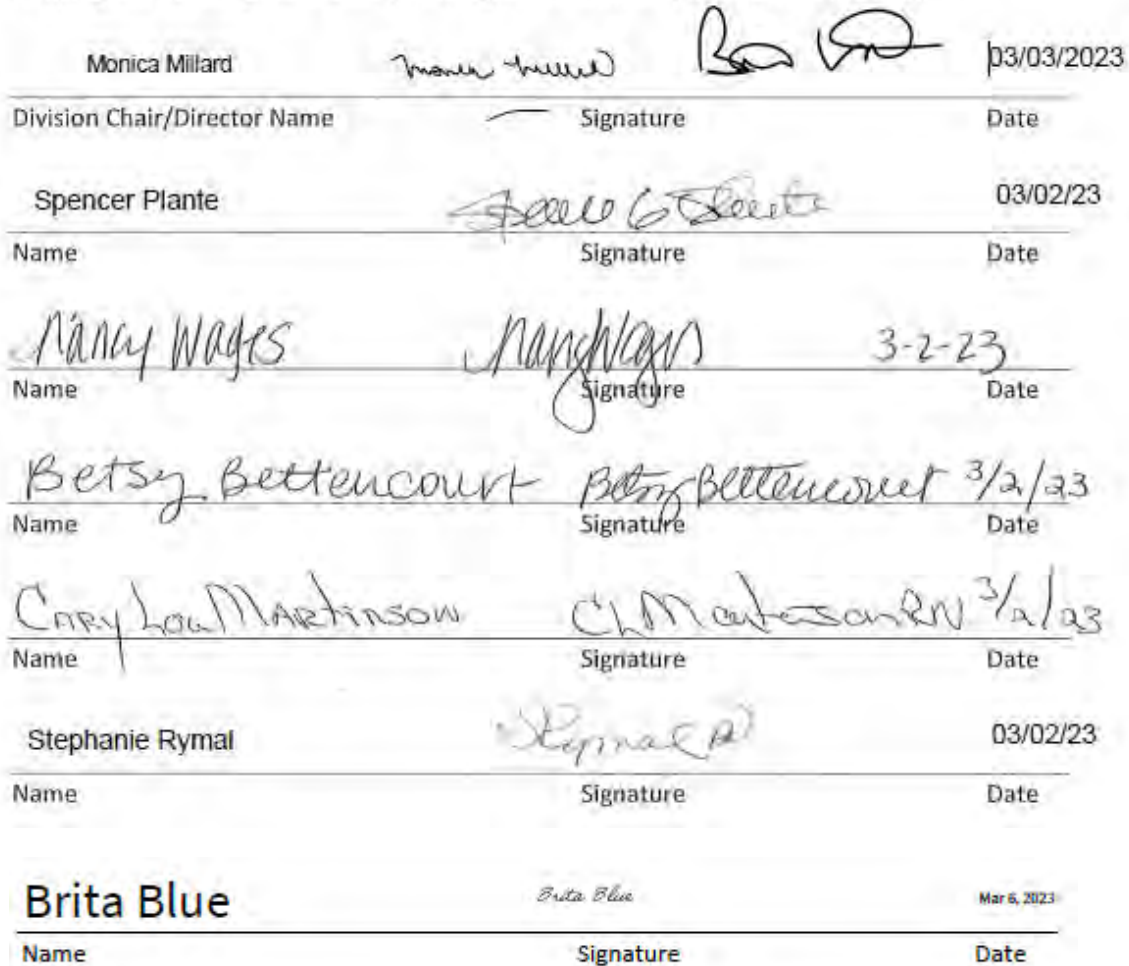 Monica Millard 03/03/2023
Division Chair/Director Name Signature Date
Spencer Plante 03/02/23
Name Signature Date
Nancy Wages Nancy Wages 3-2-23
Name Signature Date
Betsy Bettencourt Betsy Bettencourt 3/2/23
Name Signature Date
Cary Lou Martinson CL Martinson RN 3/2/23
Name Signature Date
Stephanie Rymal 03/02/23
Name Signature Date
Brita Blue Brita Blue Mar 6, 2023
Name Signature Date